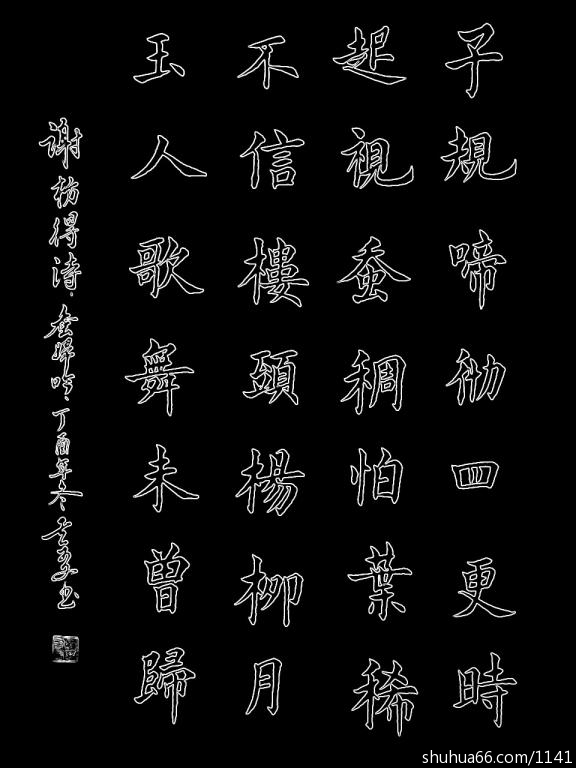 子規啼彻四更時
起視蚕稠怕葉稀
不信樓頭楊柳月
玉人歌舞未曽歸
谢枋得诗、蚕婦吟、丁酉年冬
shuhua66.com/1141